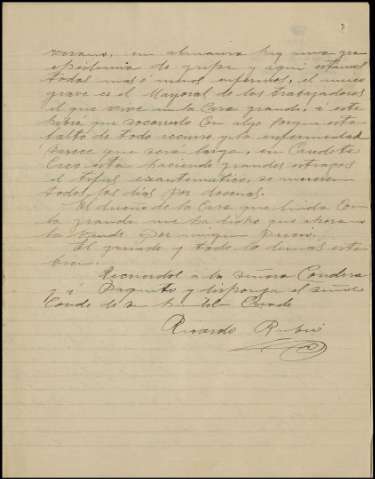 verano, en almansa hay una gra
epidemia de gripe y aqui estamos
todos mas ó menos enfermos, el unico
grave es el Mayoral de los trabajadores
el que vive en la Casa grande; á este
habrá que socorrerlo con algo porque esta
falto de todo recurso y la enfermedad
parece que será larga, en Caudete
Creo esta haciendo grandes estragos
el tifus exantematico, se mueren
todos los dias por docenas.
El dueño de la Casa que linda con
la grande me ha dicho que ahora no
la vende por ningun precio.
El ganado y todo lo demas esta
bien.
Recuerdos á la señora Condesa
y á Paquito y disponga el señor
Conde de s. h. del Criado
Ricardo Rubio